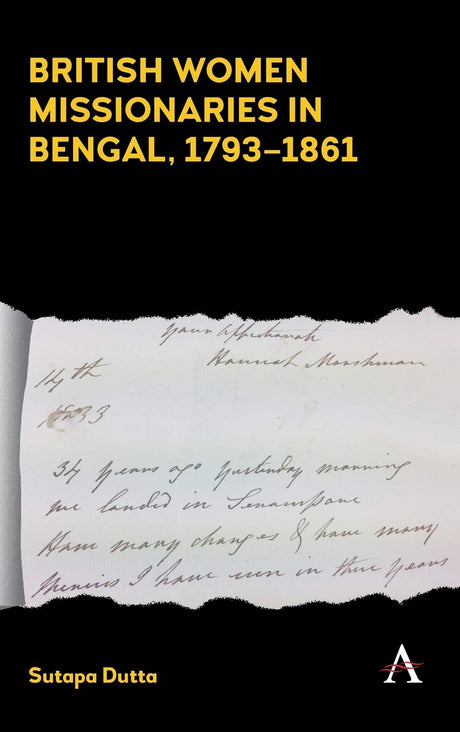 BRITISH WOMEN
MISSIONARIES IN
BENGAL, 1793–1861
Your Affectionate
Hannah Marshman
14th
1833
34 years ago yesterday morning
we landed in Serampore
Have many changes & have many
I have seen in these years
Sutapa Dutta
A